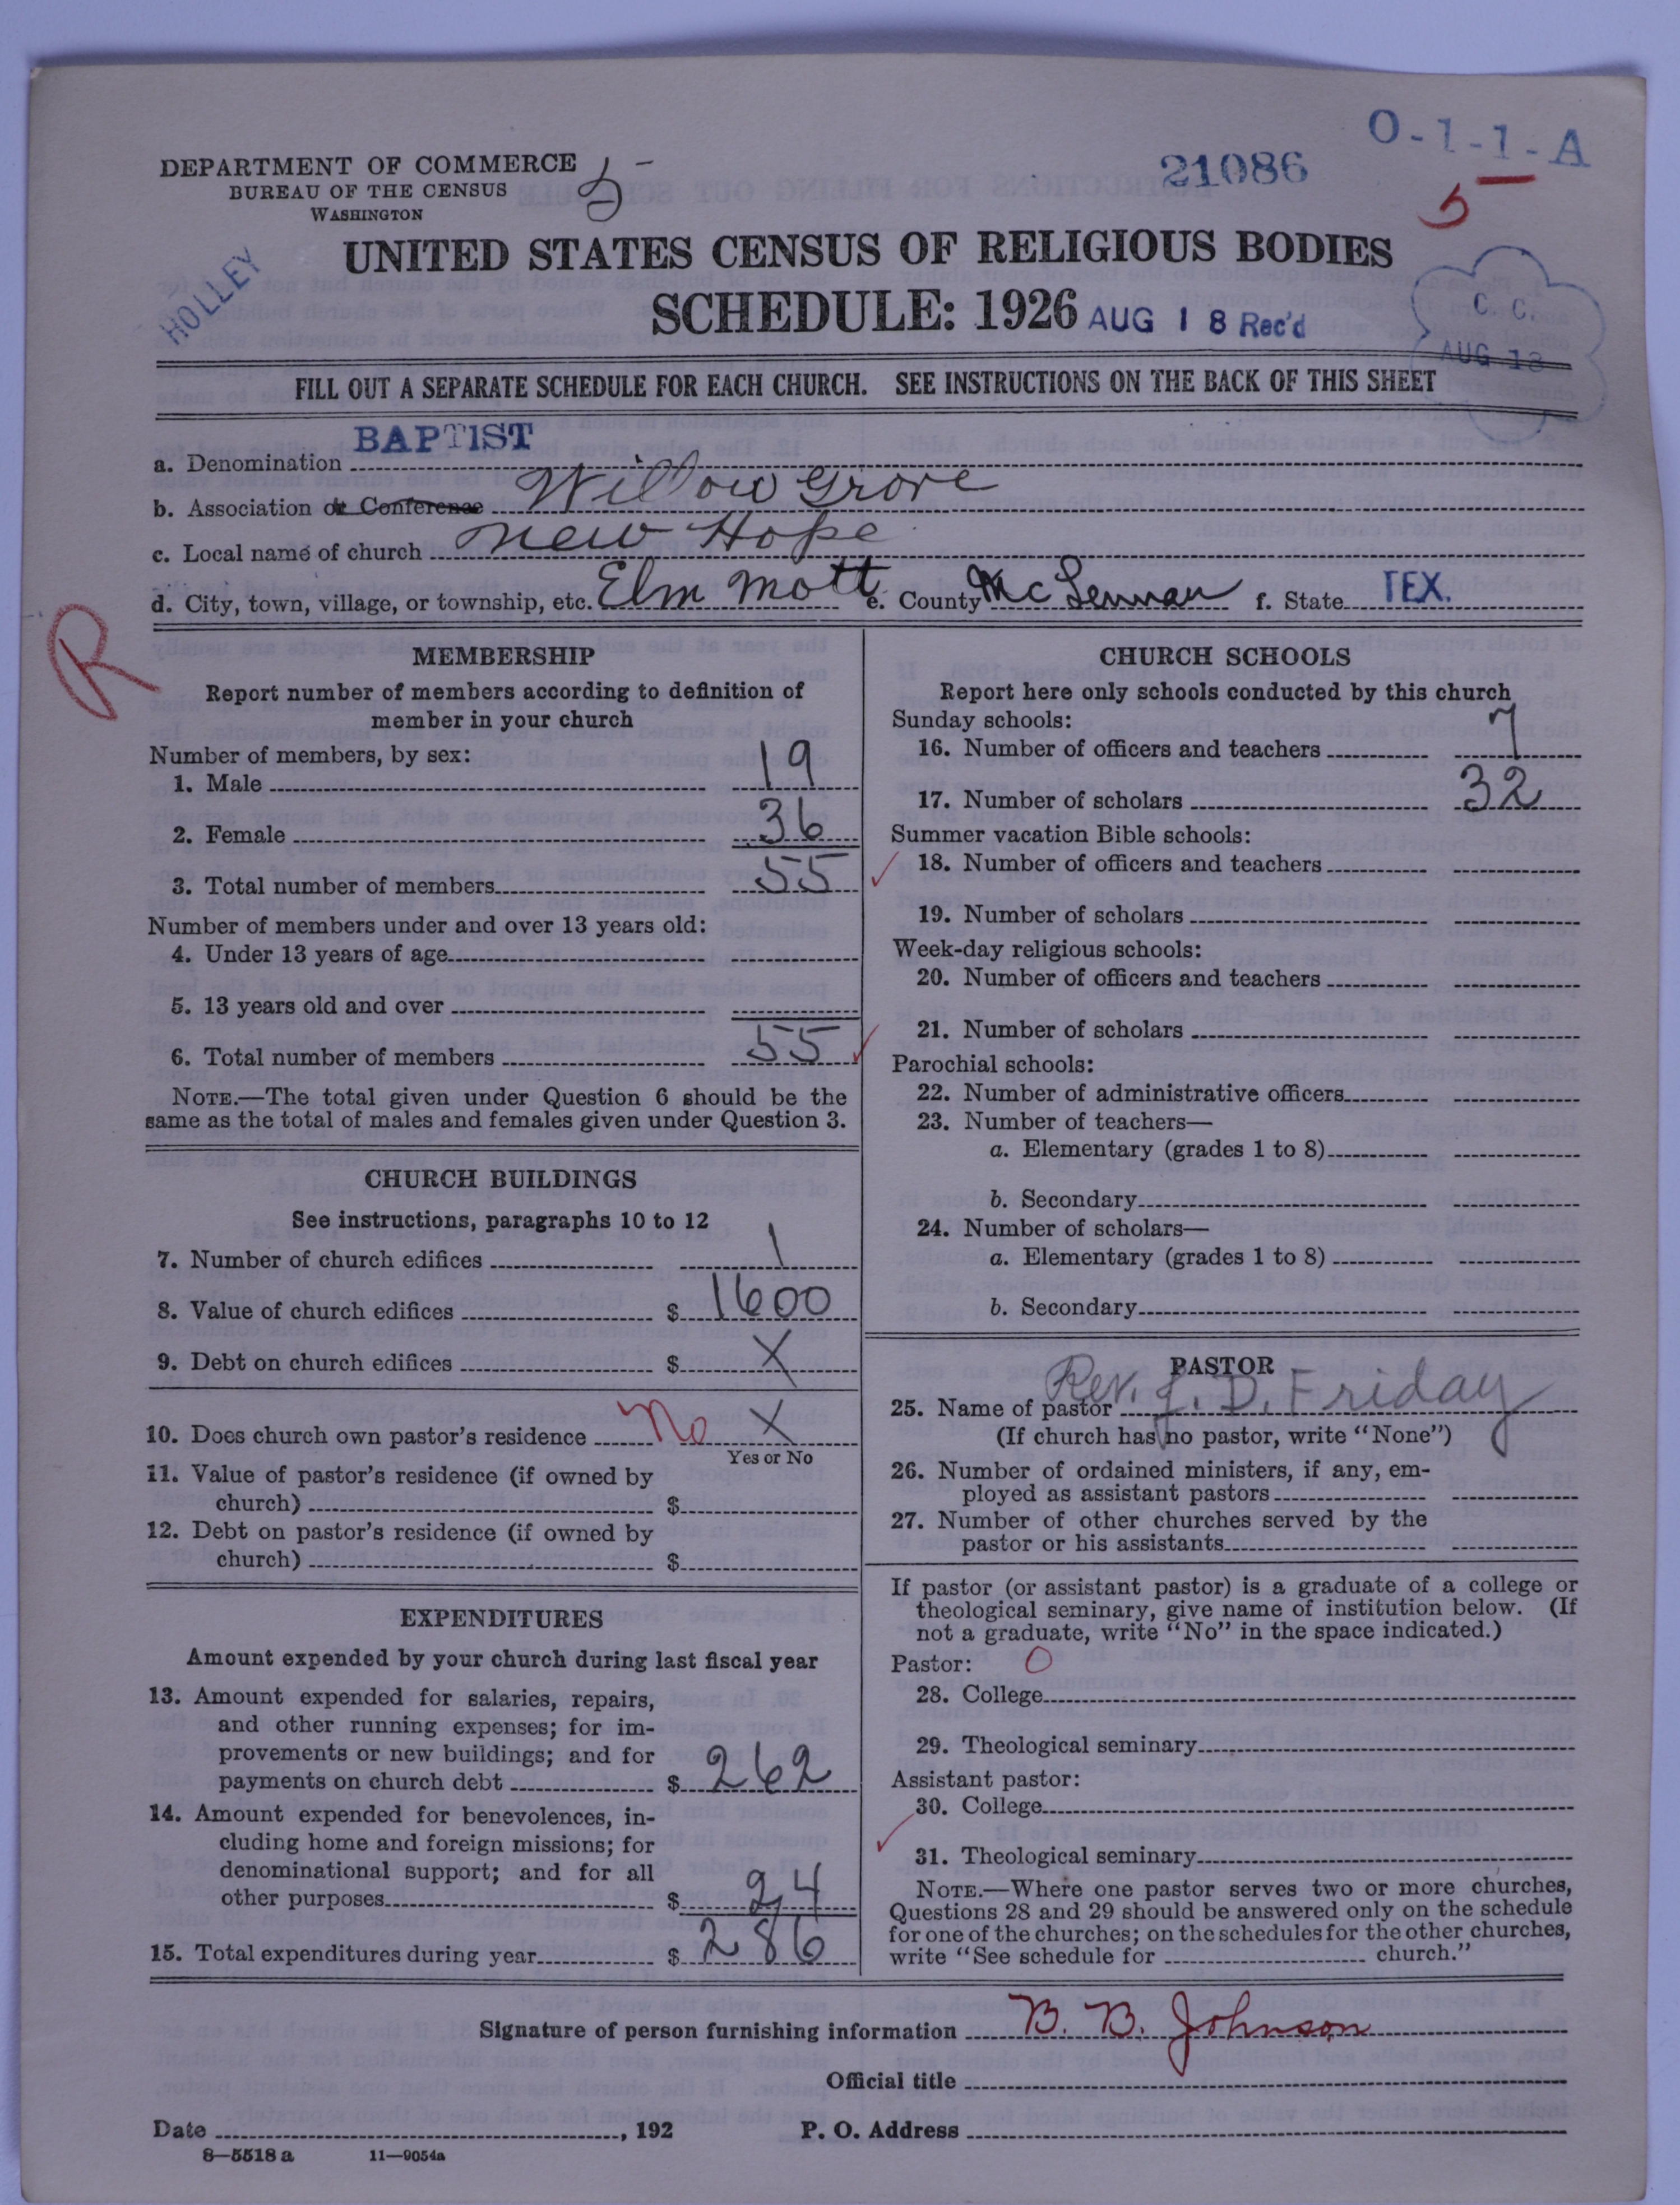 O-1-1-A
21086
5
DEPARTMENT OF COMMERCE
BUREAU OF THE CENSUS
WASHINGTON
HOLLEY
UNITED STATES CENSUS OF RELIGIOUS BODIES
SCHEDULE: 1926 AUG 18 Rec'd
C. C.
AUG 13
FILL OUT A SEPARATE SCHEDULE FOR EACH CHURCH. SEE INSTRUCTIONS ON THE BACK OF THIS SHEET
a. Denomination BAPTIST
b. Association or Conference Willow Grove
c. Local name of church New Hope
d. City, town, village, or township, etc. Elm Mott e. County McLennan f. State TEX.
R
MEMBERSHIP
Report number of members according to definition of
member in your church
Number of members, by sex:
1. Male 19
2. Female 36
3. Total number of members 55
Number of members under and over 13 years old:
4. Under 13 years of age
5. 13 years old and over
6. Total number of members 55
NOTE.—The total given under Question 6 should be the
same as the total of males and females given under Question 3.
CHURCH BUILDINGS
See instructions, paragraphs 10 to 12
7. Number of church edifices 1
8. Value of church edifices $ 1600
9. Debt on church edifices $ X
10. Does church own pastor's residence No X
Yes or No
11. Value of pastor's residence (if owned by
church) $
12. Debt on pastor's residence (if owned by
church) $
EXPENDITURES
Amount expended by your church during last fiscal year
13. Amount expended for salaries, repairs,
and other running expenses; for im-
provements or new buildings; and for
payments on church debt $ 262
14. Amount expended for benevolences, in-
cluding home and foreign missions; for
denominational support; and for all
other purposes $ 24
15. Total expenditures during year $ 286
CHURCH SCHOOLS
Report here only schools conducted by this church
Sunday schools:
16. Number of officers and teachers 7
17. Number of scholars 32
Summer vacation Bible schools:
18. Number of officers and teachers
19. Number of scholars
Week-day religious schools:
20. Number of officers and teachers
21. Number of scholars
Parochial schools:
22. Number of administrative officers
23. Number of teachers—
a. Elementary (grades 1 to 8)
b. Secondary
24. Number of scholars—
a. Elementary (grades 1 to 8)
b. Secondary
PASTOR
25. Name of pastor Rev. J. D. Friday
(If church has no pastor, write "None")
26. Number of ordained ministers, if any, em-
ployed as assistant pastors
27. Number of other churches served by the
pastor or his assistants
If pastor (or assistant pastor) is a graduate of a college or
theological seminary, give name of institution below. (If
not a graduate, write "No" in the space indicated.)
Pastor: O
28. College
29. Theological seminary
Assistant pastor:
30. College
31. Theological seminary
NOTE.—Where one pastor serves two or more churches,
Questions 28 and 29 should be answered only on the schedule
for one of the churches; on the schedules for the other churches,
write "See schedule for church."
Signature of person furnishing information B. B. Johnson
Official title
Date , 192 P. O. Address
8—5518 a 11—9054a